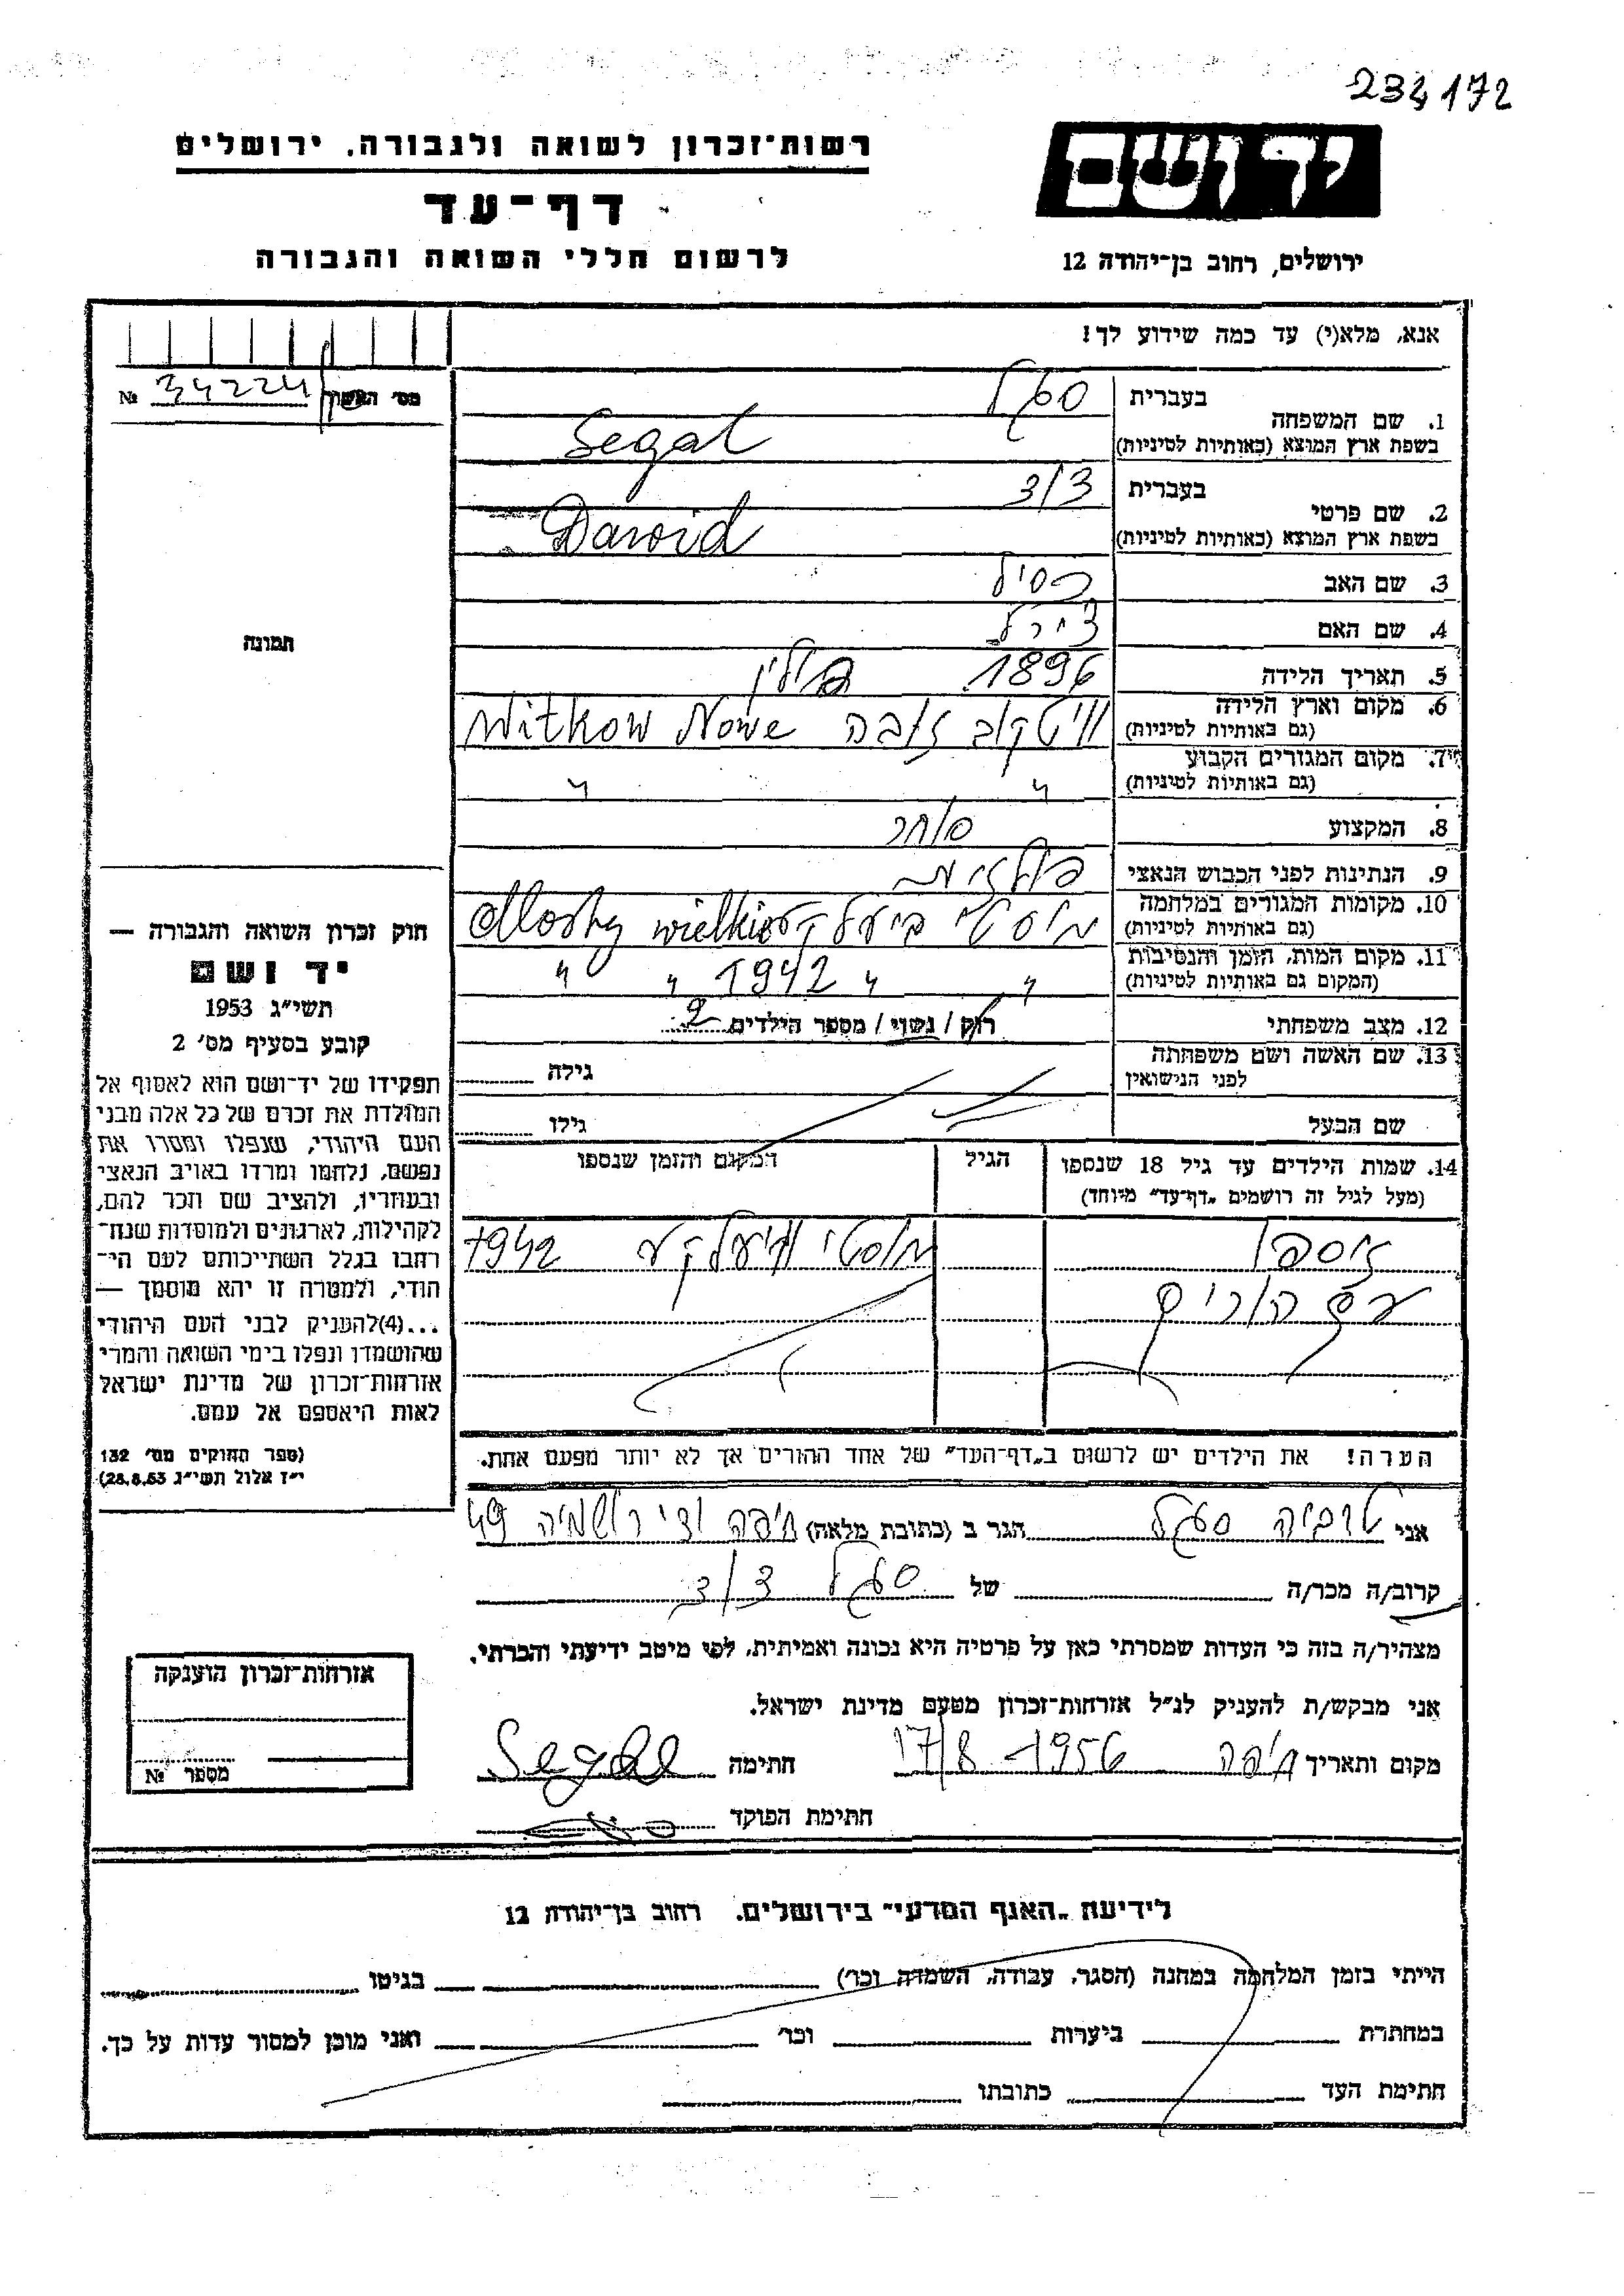 234172
יד ושם
רשות־זכרון לשואה ולגבורה, ירושלים
דף־עד
לרשום חללי השואה והגבורה
ירושלים, רחוב בן־יהודה 12
אנא, מלא(י) עד כמה שידוע לך!
№ 34224
1. שם המשפחה
בעברית סגל
בשפת ארץ המוצא (באותיות לטיניות) Segal
2. שם פרטי
בעברית דוד
בשפת ארץ המוצא (באותיות לטיניות) Dawid
3. שם האב
4. שם האם
5. תאריך הלידה 1896 פולין
6. מקום וארץ הלידה
(גם באותיות לטיניות) וויטקוב נובה Witkow Nowe
7. מקום המגורים הקבוע
(גם באותיות לטיניות) " "
8. המקצוע סוחר
9. הנתינות לפני הכבוש הנאצי פולנית
10. מקומות המגורים במלחמה
(גם באותיות לטיניות) מוסטי Mosty wielkie
11. מקום המות, הזמן והנסיבות
(המקום גם באותיות לטיניות) " " 1942 " "
12. מצב משפחתי רוק / נשוי / מספר הילדים 2
13. שם האשה ושם משפחתה
לפני הנישואין
גילה
שם הבעל גילו
14. שמות הילדים עד גיל 18 שנספו
(מעל לגיל זה רושמים „דף־עד” מיוחד)
הגיל
המקום והזמן שנספו
נוספו מוסטי וויעלקע 1942
עם הורים
הערה! את הילדים יש לרשום ב„דף־העד” של אחד ההורים אך לא יותר מפעם אחת.
תמונה
חוק זכרון השואה והגבורה —
יד ושם
תשי״ג 1953
קובע בסעיף מס׳ 2
תפקידו של יד־ושם הוא לאסוף אל
המולדת את זכרם של כל אלה מבני
העם היהודי, שנפלו ומסרו את
נפשם, נלחמו ומרדו באויב הנאצי
ובעוזריו, ולהציב שם וזכר להם,
לקהילות, לארגונים ולמוסדות שנח־
רחבו בגלל השתייכותם לעם הי־
הודי, ולמטרה זו יהא מוסמך —
...(4)להעניק לבני העם היהודי
שהושמדו ונפלו בימי השואה והמרי
אזרחות־זכרון של מדינת ישראל
לאות היאספם אל עמם.
(ספר החוקים מס׳ 132
י״ז אלול תשי״ג 28.8.53)
אני טוביה סגל הגר ב (כתובת מלאה) חיפה ואדי רושמיה 49
קרוב/ה מכר/ה של סגל דוד
מצהיר/ה בזה כי העדות שמסרתי כאן על פרטיה היא נכונה ואמיתית, לפי מיטב ידיעתי והכרתי.
אני מבקש/ת להעניק לנ״ל אזרחות־זכרון מטעם מדינת ישראל.
מקום ותאריך חיפה 17/8 1956 חתימה Segal
חתימת הפוקד
אזרחות־זכרון הוענקה
מספר №
לידיעת „האגף המדעי” בירושלים, רחוב בן־יהודה 12
הייתי בזמן המלחמה במחנה (הסגר, עבודה, השמדה וכו׳) בגיטו
במחתרת ביערות וכו׳ ואני מוכן למסור עדות על כך.
חתימת העד כתובתו